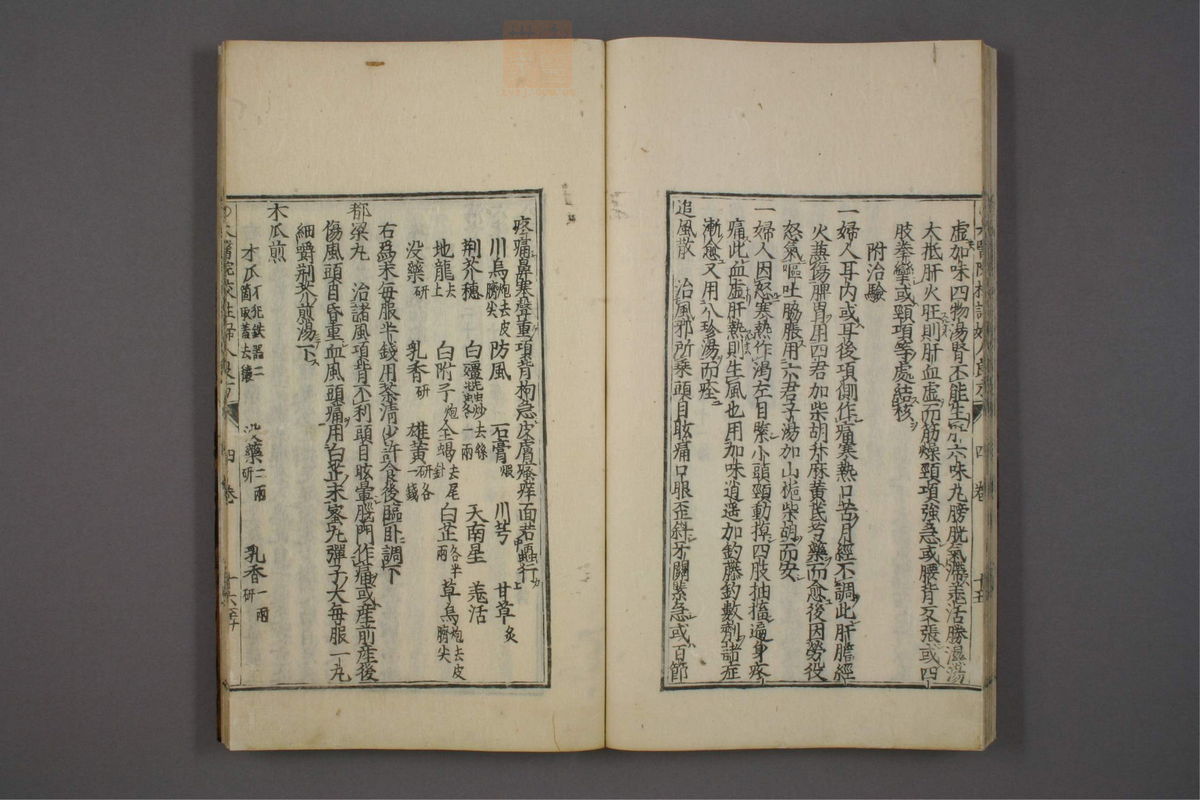 虛加味四物湯腎不能生肝六味丸膀胱氣滯羌活勝濕湯
大抵肝火旺則肝血虛而筋燥頸項強急或腰背反張或四
肢拳攣或頸項等處結核
附治驗
一婦人耳内或耳後項側作痛寒熱口苦月經不調此肝膽經
火兼傷脾胃用四君加柴胡升麻黄芪芍藥而愈後因勞役
怒氣嘔吐脇脹用六君子湯加山梔柴胡而安
一婦人因怒寒熱作渴左目緊小頭頸動掉四肢抽搐遍身疼
痛此血虛肝熱則生風也用加味逍遥加鈎藤鈎數劑諸症
漸愈又用八珍湯而痊
追風散 治風邪所乗頭目眩痛口眼歪斜牙關緊急或百節
疼痛鼻塞聲重項背拘急皮膚瘙痒面若蟲行
川烏炮去皮臍尖 防風 石膏煨 川芎 甘草炙
荆芥穗 白殭蚕炒去絲各一兩 天南星 羌活
地龍去土 白附子炮 全蝎去尾針 白芷各半兩 草烏炮去皮臍尖
没藥研 乳香研 雄黄研各一錢
右爲末每服半錢用茶清少許食後臨卧調下
都梁丸 治諸風項背不利頭目眩暈腦門作痛或産前産後
傷風頭目昏重血風頭痛用白芷末蜜丸彈子大每服一丸
細嚼荆芥煎湯下
木瓜煎
木瓜不犯鐵器二箇取蓋去穰 没藥二兩研 乳香一兩研
四卷